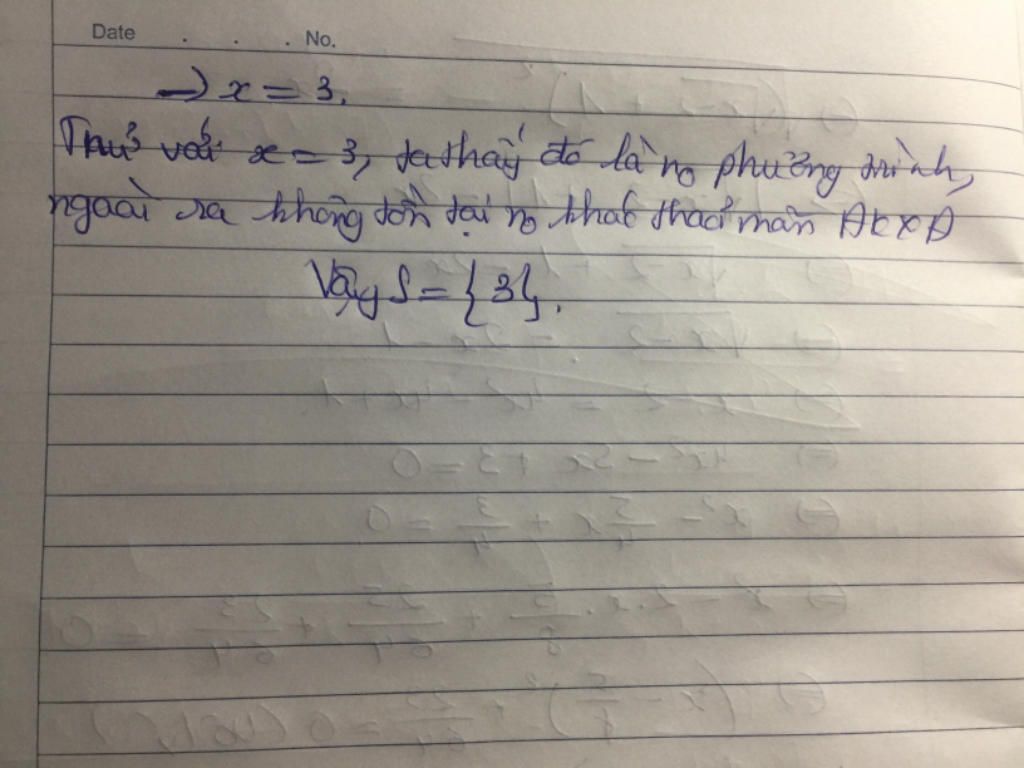 Date . . . No.
→ x = 3.
Thử với x = 3, ta thấy đó là n₀ phương trình,
ngoài ra không tồn tại n₀ khác thoả mãn ĐKXĐ
Vậy S = {3}.